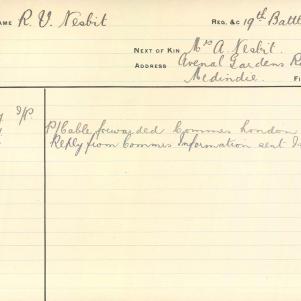 NAME R. V. Nesbit
REG. &C 19th Battl
NEXT OF KIN Mrs A. Nesbit.
ADDRESS Avenal Gardens
Medindie.
P/Cable forwarded Commes London
Reply from Commes Information sent